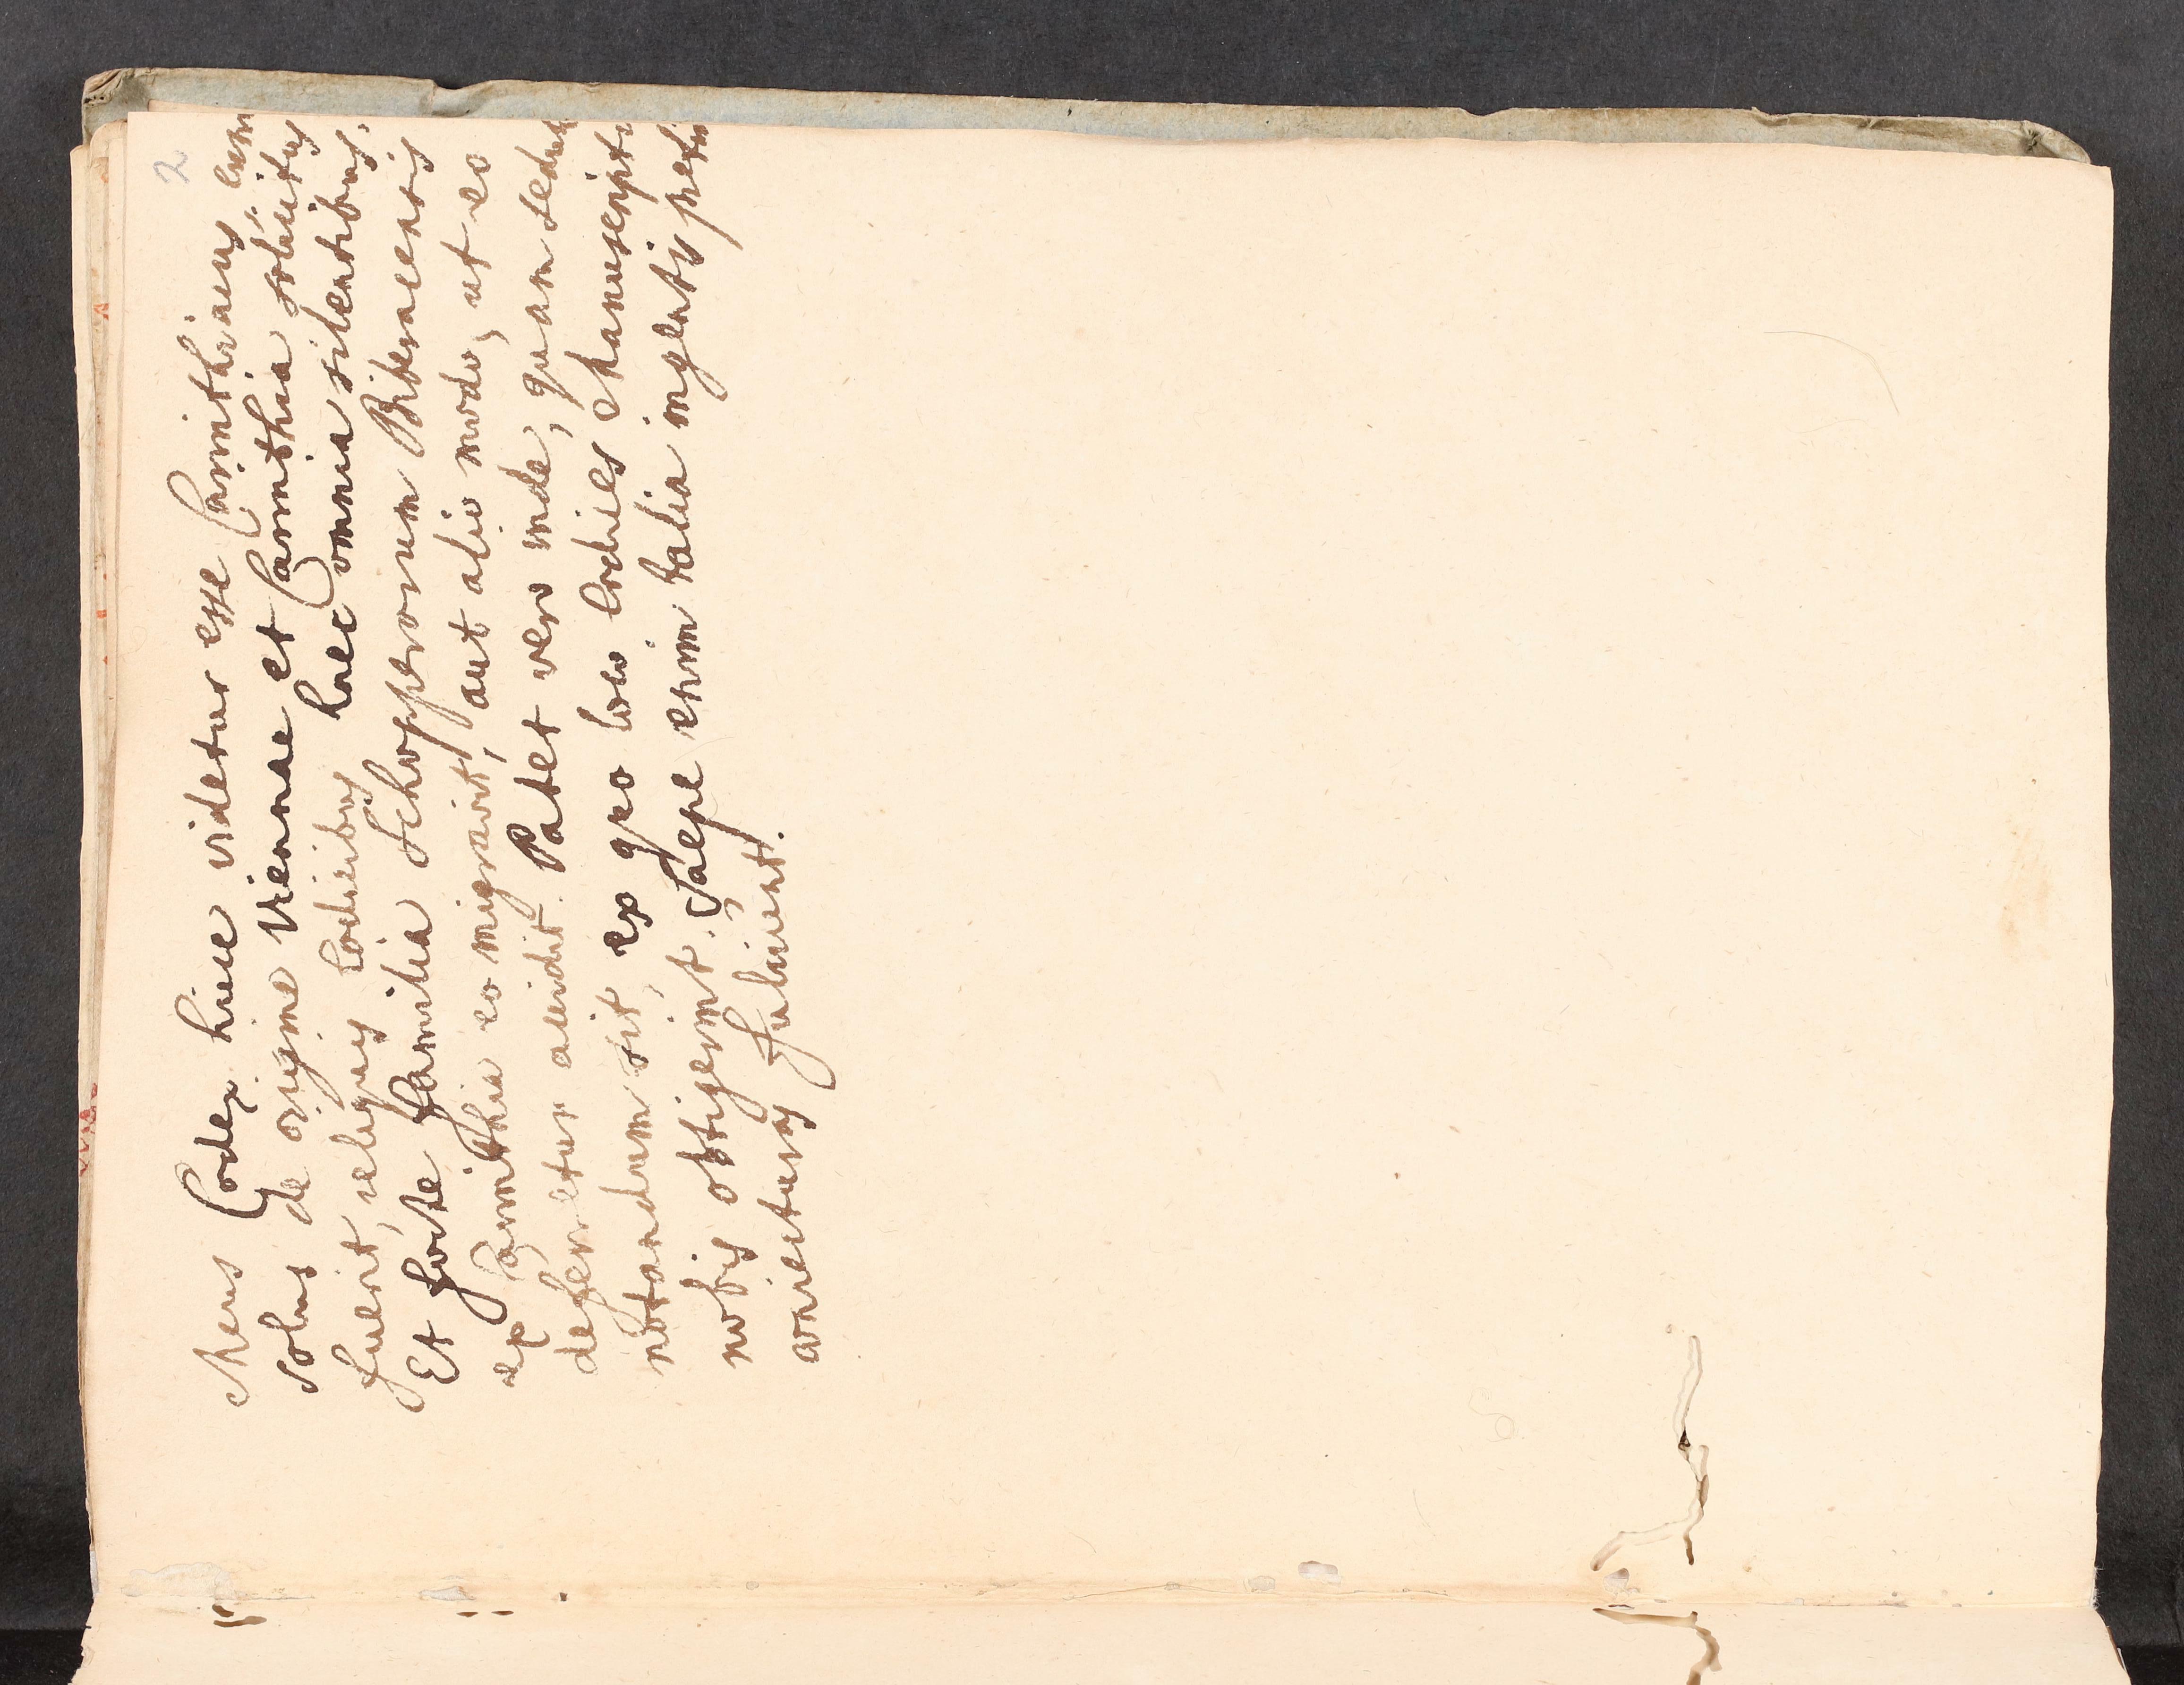 2
Meus Codex hice videtur esse Carinthiacus, cum
solus de origine Viennae et Carinthia solicitus
fuerit, reliquis Codicibus haec omnia silentibus.
Et forte familia Schopperorum Biberacensis
ex Carinthia eo migravit, aut alio modo, ut eo
deferretur accidit. Patet vero inde, quam
notandum sit, ex quo loco Codices Manuscripti
nobis obtigerint. Saepe enim talia ingentis
coniecturas fulciunt.